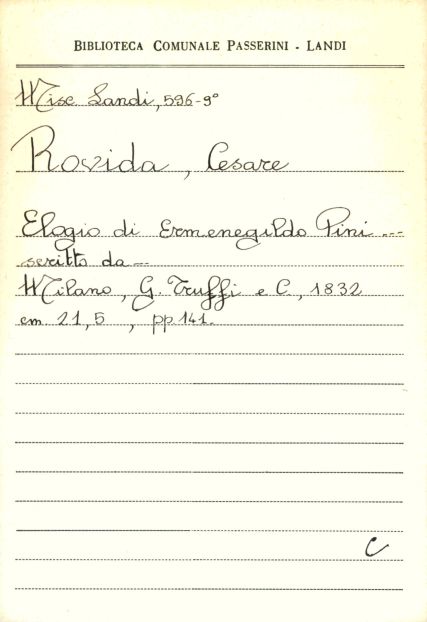 BIBLIOTECA COMUNALE PASSERINI - LANDI
Misc. Landi, 596-9°
Rovida, Cesare
Elogio di Ermenegildo Pini ...
scritto da ...
Milano, G. Truffi e C., 1832
cm. 21,5, pp. 141.
C